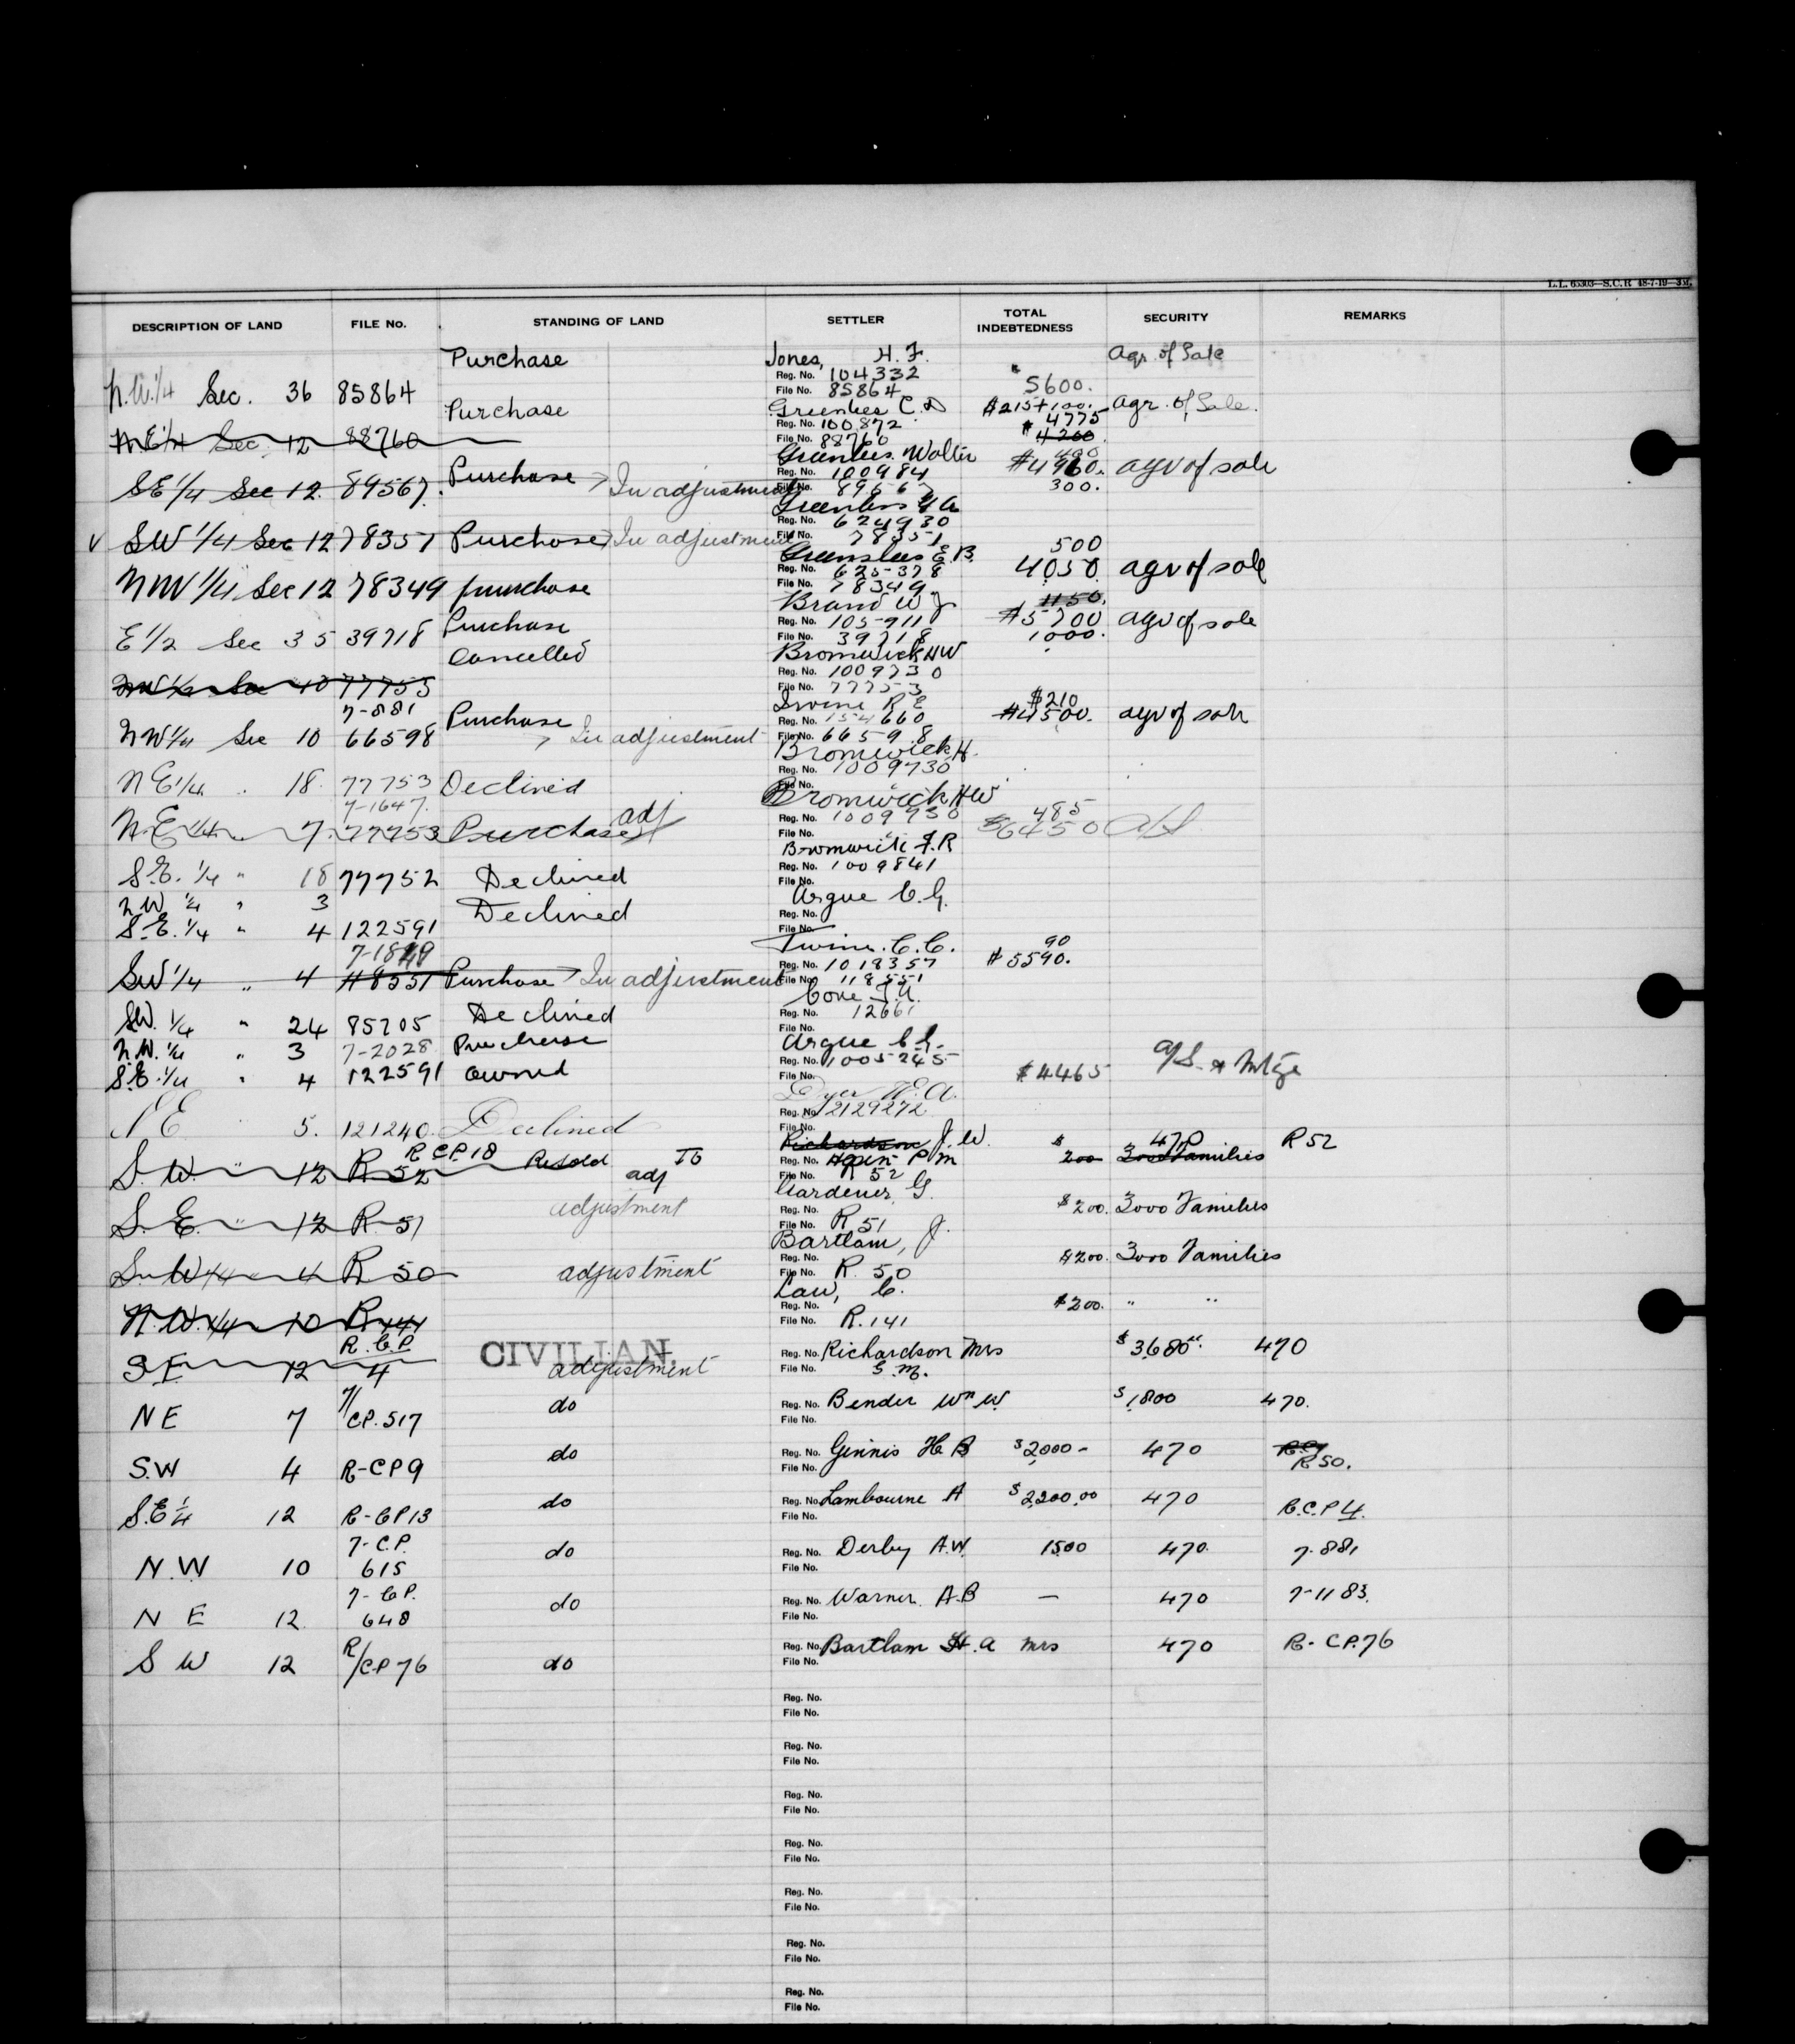 L.L. 65303—S.C.R. 48-7-19—3M.
DESCRIPTION OF LAND FILE No. STANDING OF LAND SETTLER TOTAL INDEBTEDNESS SECURITY REMARKS
Purchase Jones, H. F. Agr. of Sale
Reg. No. 104332
N.W. 1/4 Sec. 36 85864 File No. 85864 5600.
Purchase Greenlees C. D $215+100. Agr. of Sale.
Reg. No. 100872 $4775
N.E. 1/4 Sec. 12 88760 File No. 88760 4200
Purchase Greenlees Walter 400
Reg. No. 100984 $4960. agr of sale
SE 1/4 Sec 12. 89567. In adjustment File No. 89567 300.
Greenlees
Reg. No. 624930
SW 1/4 Sec 12 78351 Purchase In adjustment File No. 78351
Greenslees E B. 500
Reg. No. 625378 4050 agr of sale
NW 1/4 Sec 12 78349 purchase File No. 78349
Brand W J 1150.
Purchase Reg. No. 105-911 $5700 agr of sale
E 1/2 Sec 35 39718 File No. 39718 1000.
Cancelled Bromwick HW
Reg. No. 1009730
NW 1/4 Sec 10 77753 File No. 77753
7-881 Irvine R E $210
Purchase Reg. No. 154660 $4500. agr of sale
NW 1/4 Sec 10 66598 In adjustment File No. 66598
Bromwick H.
Reg. No. 1009730
NE 1/4 " 18 77753 Declined File No.
7-1647. Bromwick HW
adj Reg. No. 1009730 485
N.E. 1/4 " 7. 77753 Purchase File No. $6450 A/S
Bromwick F.R
Reg. No. 1009841
S.E. 1/4 " 18 77752 Declined File No.
N.W. 1/4 " 3 Declined Argue C. G.
Reg. No.
S.E. 1/4 " 4 122591 File No.
7-1849 C. C. 90
Reg. No. 1018357 $5590.
SW 1/4 " 4 118551 Purchase In adjustment File No. 118551
Cove
Declined Reg. No. 12661
SW. 1/4 " 24 85705 File No.
N.W. 1/4 " 3 7-2028 Purchase Argue C. G.
Reg. No. 1005245 A/S. & Mtge
S.E. 1/4 " 4 122591 owned File No. $4465
Dyer H. A.
Reg. No. 2129272
N E " 5. 121240. Declined File No.
R CP. 18 Richardson J. W. 470 R 52
S. W. " 12 R 52 Resold To Reg. No. P M $200 3000 Families
adj File No. R 52
Gardener, G.
adjustment Reg. No. $200. 3000 Families
S. E. " 12 R. 51 File No. R 51
Bartlam, J.
Reg. No. $200. 3000 Families
S. W 1/4 " 4 R 50 adjustment File No. R. 50
Law, C.
Reg. No. $200. " "
N. W. 1/4 10 R 141 File No. R. 141
R. C.P. CIVILIAN. Reg. No. Richardson Mrs $3680 470
S E 12 4 adjustment File No. S. M.
7/ do Reg. No. Bender Wm W. $1,800 470.
NE 7 CP. 517 File No.
do Reg. No. Ginnis H. B $2,000 - 470
S.W 4 R-CP9 File No. R 50.
do Reg. No. Lambourne A $2,200.00 470
S.E 1/4 12 R-CP13 File No. R.C.P 4.
7-C.P. do Reg. No. Derby A.W. 1500 470. 7-881
N.W 10 615 File No.
7-C.P. do Reg. No. Warner. A.B — 470 7-1183.
N E 12. 648 File No.
R/ Reg. No. Bartlam H. A Mrs 470 R-CP.76
S W 12 CP 76 do File No.
Reg. No.
File No.
Reg. No.
File No.
Reg. No.
File No.
Reg. No.
File No.
Reg. No.
File No.
Reg. No.
File No.
Reg. No.
File No.